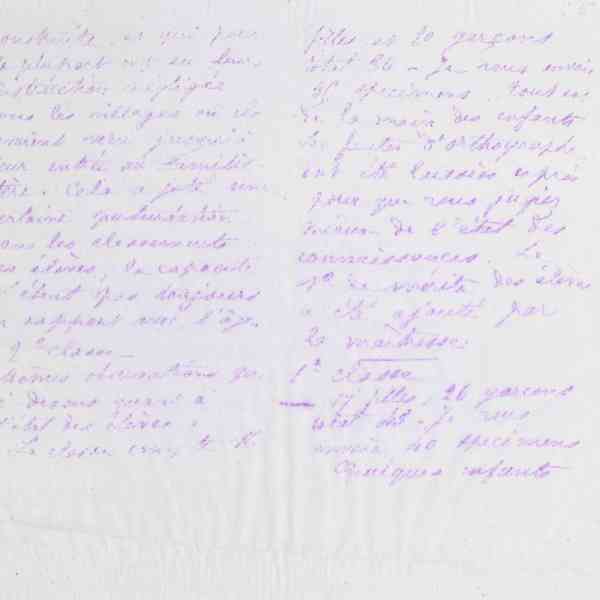 construite, et qui pour
la plupart ont eu leur
instruction négligée
dans les villages où ils
jusqu'à
leur entrée au
Cela a jeté une
certaine perturbation
dans les classements
des élèves, la capacité
n'étant pas toujours
en rapport avec l'âge.
2e classe
Mêmes observations que
ci dessus quant à
l'état des élèves.
La classe
filles et 20 garçons
total 36 - Je vous envoie
35 spécimens. Tout est
de la main des enfants
les fautes d'orthographe
ont été laissées exprès
pour que vous jugiez
mieux de l'état des
connaissances. Le
no de mérite des élèves
a été ajouté par
la maîtresse.
1e classe
17 filles, 26 garçons
total 43 - Je vous
envoie 40 spécimens
Quelques enfants